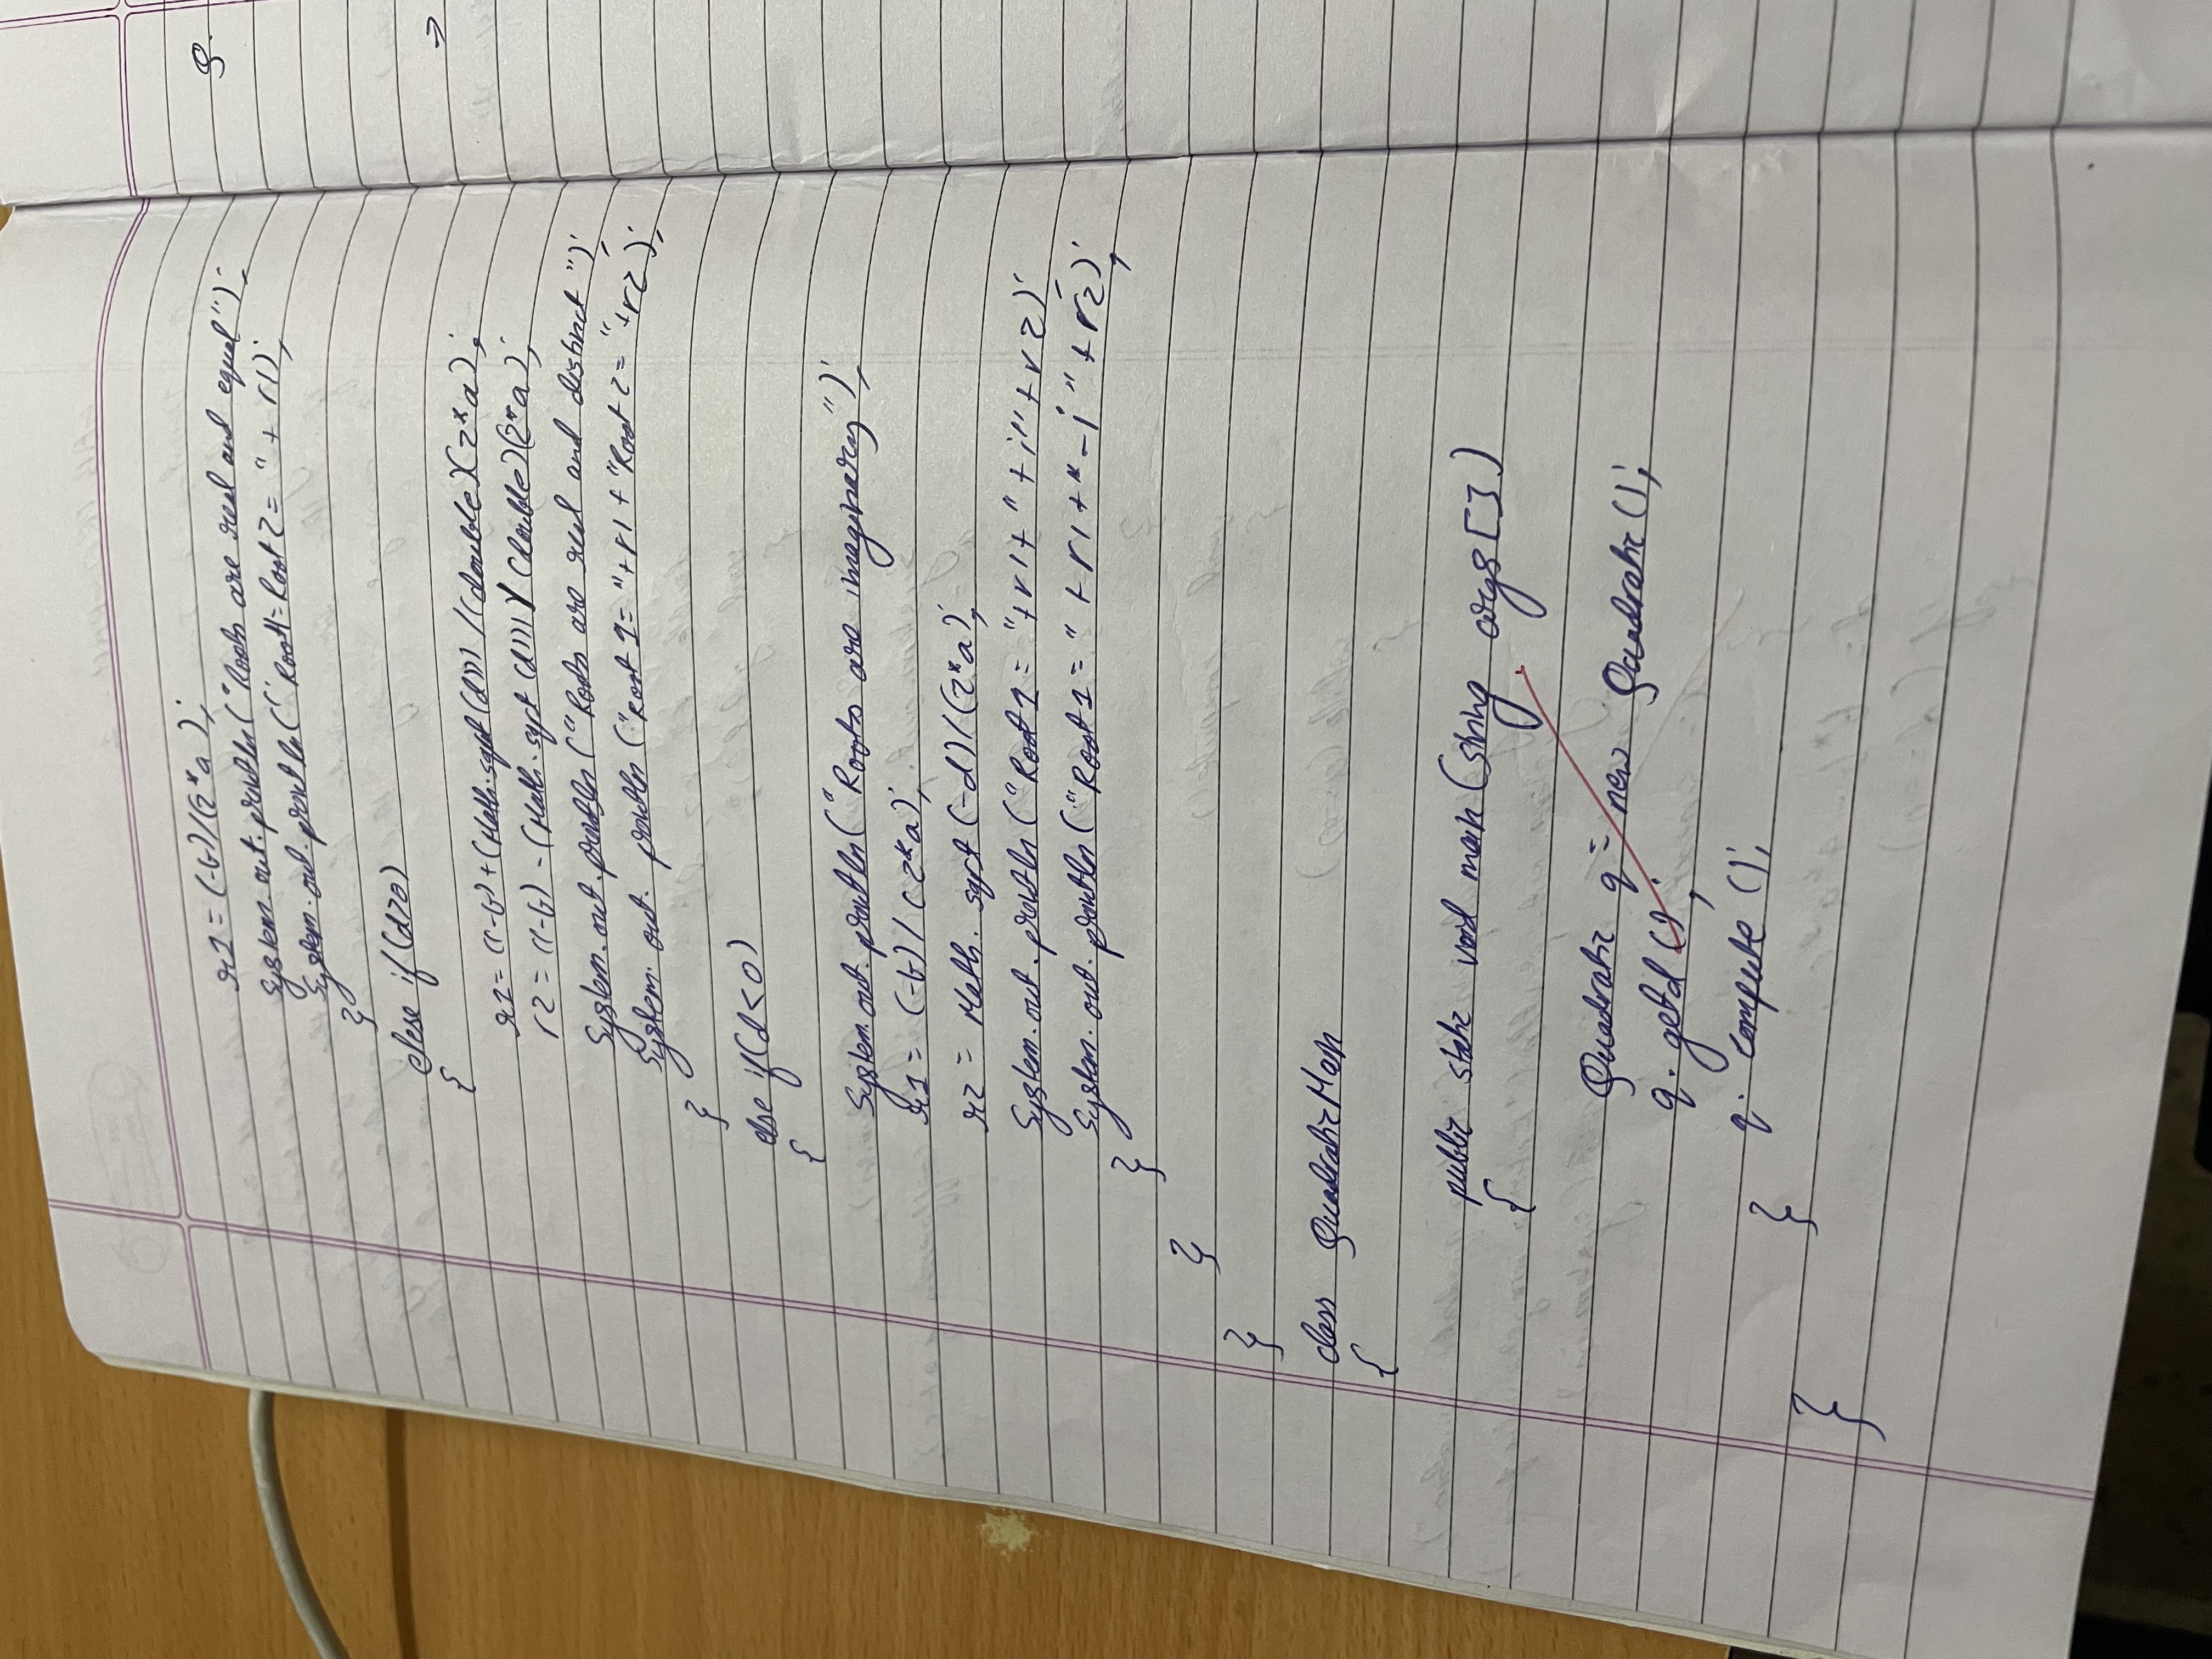 r1 = (-b)/(2*a);
System.out.println("Roots are real and equal");
System.out.println("Root1=Root2= " + r1);
}
else if(d>0)
{
r1 = ((-b)+(Math.sqrt(d)))/(double)(2*a);
r2 = ((-b)-(Math.sqrt(d)))/(double)(2*a);
System.out.println("Roots are real and distinct");
System.out.println("Root 1= "+r1+"Root 2= "+r2);
}
else if(d<0)
{
System.out.println("Roots are imaginary");
r1 = (-b)/(2*a);
r2 = Math.sqrt(-d)/(2*a);
System.out.println("Root1 = "+r1+" +i"+r2);
System.out.println("Root1 = "+r1+" -i"+r2);
}
}
}
class QuadraticMain
{
public static void main(string args[])
{
Quadratic q = new Quadratic();
q.getd();
q.compute();
}
}
Q.
→